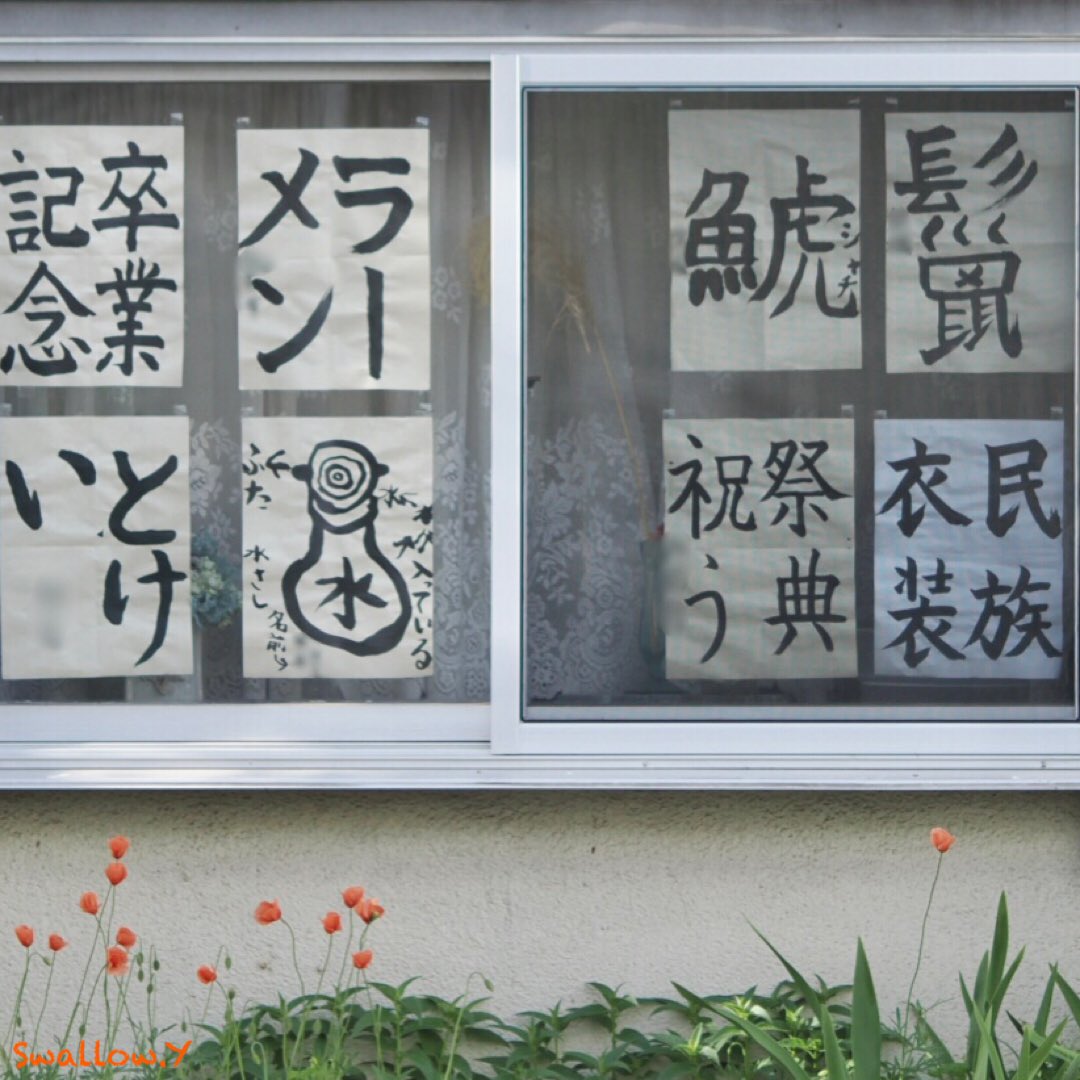 鬣
鯱
シャチ
ラー
メン
卒業
記念
民族
衣装
祭典
祝う
入っている
水
ふた
水さし
名前
とけ
い
Swallow.Y